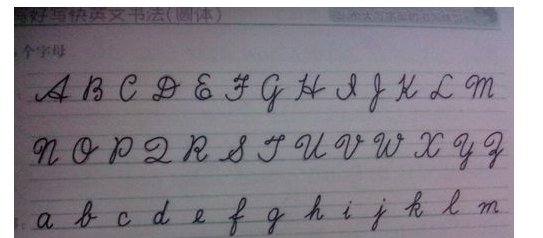 写好写快英文书法(圆体)
个字母
A B C D E F G H I J K L M
N O P Q R S T U V W X Y Z
a b c d e f g h i j k l m